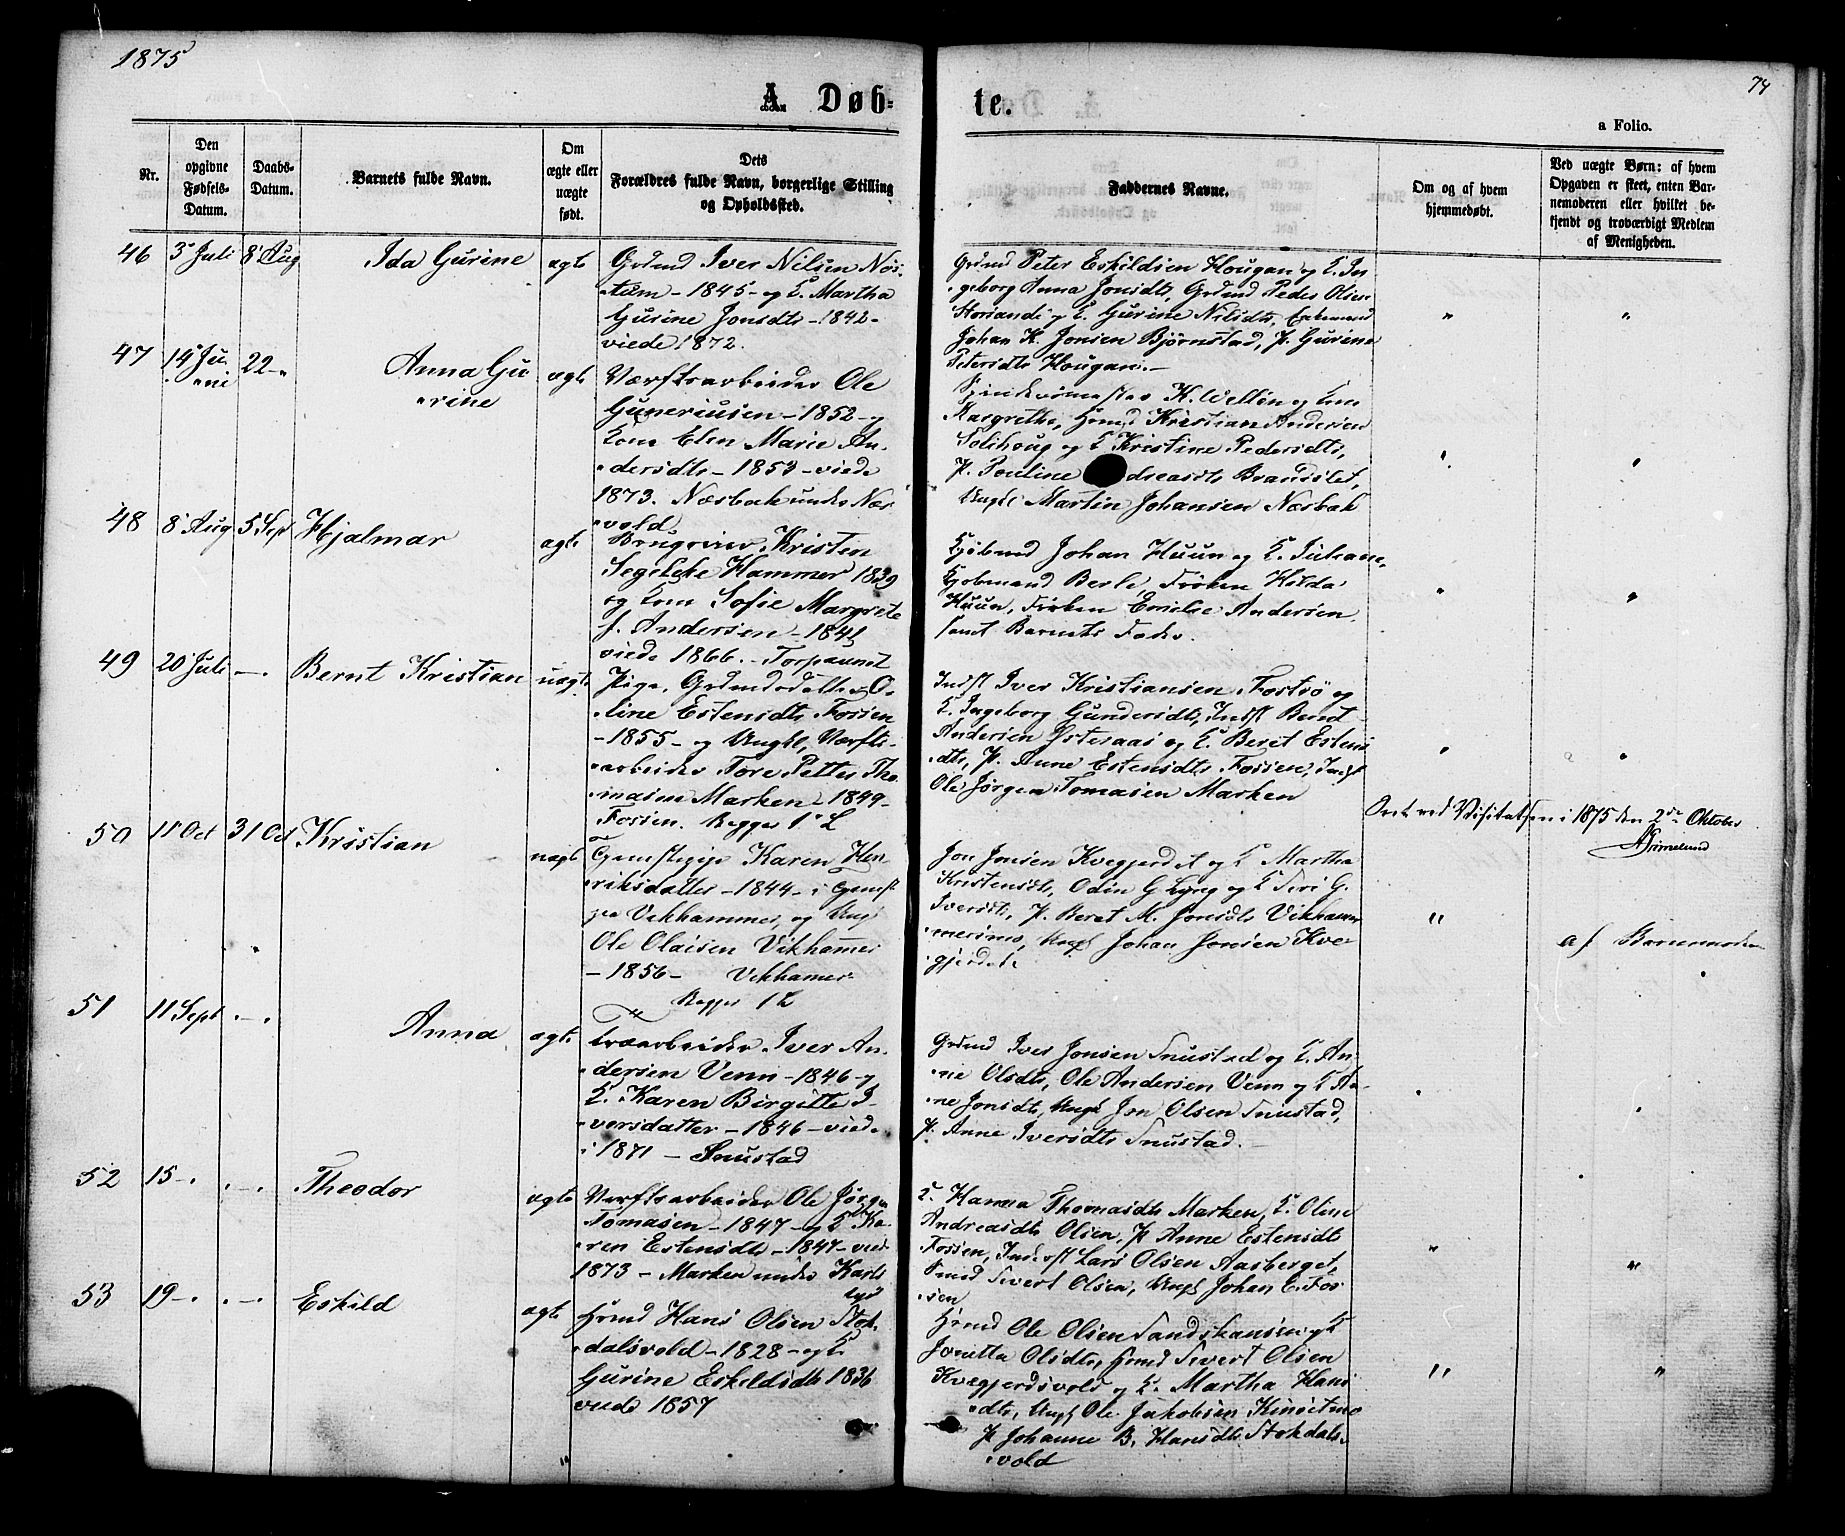 1875
74
A. Døb-
te.
a Folio.
Nr.
Den
opgivne
Fødsels-
Datum.
Daabs-
Datum.
Barnets fulde Navn.
Om
ægte eller
uægte
født.
Dets
Forældres fulde Navn, borgerlige Stilling
og Opholdssted.
Faddernes Navne.
Om og af hvem
hjemmedøbt.
Ved uægte Børn: af hvem
Opgaven er skeet, enten Bar-
nemoderen eller hvilket be-
kjendt og troværdigt Medlem
af Menigheden.
46 3 Juli 8 Aug Ida Gurine ægte
Grdmd Iver Nilsen Nøs-
tum - 1845 - og K. Martha
Gurine Jonsdtr - 1842 -
viede 1872.
Grdmd Peter Eskildsen Hougan og K. In-
geborg Anna Jonsdtr, Grdmd Peder Olsen
og K Gurine Nilsdtr,
Johan K. Jonsen Bjørnstad, P. Gurine
Petersdtr Hougan. -
47 14 Ju-
ni 22 - " Anna Gu-
rine ægte
Værftsarbeider Ole
Guneriusen - 1852 - og
Kone Elen Marie An-
dersdtr - 1853 - viede
1873. Næsbak under Næs-
vold.
K. Wellén og Kone
Margrethe, Hmd Kristian Andersen
Solihoug og K Kristine Pedersdtr,
P. Pouline dreasdtr Brandslet,
Ungk Martin Johansen Næsbak
48 8 Aug 5 Sept Hjalmar ægte
Brugseier Kristen
Segelcke Hammer 1839
og Kone Sofie Margrete
f. Andersen - 1841
viede 1866. - Torpaunet
Kjøbmd Johan Huun og K. Juliane,
Kjøbmand Berle, Frøken Hilda
Huun, Frøken Emilie Andersen
samt Barnets Fader.
49 20 Juli - - Bernt Kristian uægte
Pige, Grdmdsdatter O-
line Estensdtr Fossen
- 1855 - og Ungk, Værfts-
arbeider Tore Petter Tho-
masen Marken - 1849 -
Fossen. Begges 1 L
Indst Iver Kristiansen Fostsø og
K. Ingeborg Gundersdtr, Indst Bernt
Andersen Østeraas og K. Beret Estens-
dtr, P. Anne Estensdtr Fossen, Ungk
Ole Jørgen Tomasen Marken
Seet ved Visitatsen i 1875 den 2de Oktober
Grimelund
50 11 Oct 31 Oct Kristian uægte
Tjenestepige Karen Hen-
riksdatter - 1844 - i Tjenest
paa Vikhammer, og Ungk
Ole Olaisen Vikhamer
- 1856 - Vikhamer
Begges 1 L
Jon Jonsen Kvegjerdet og K Martha
Kristensdtr, Odin G Lyng og K Siri G.
Iversdtr, P. Beret M. Jonsdtr Vikham-
mersmo, Ungk Johan Jonsen Kve-
gjerdet
af Barnemoderen
51 11 Sept - - Anna ægte
Træarbeider Iver An-
dersen Venn - 1846 - og
K. Karen Birgitte I-
versdatter - 1846 - viede
i 1871 - Snustad
Grdmd Iver Jonsen Snustad og K. An-
ne Olsdtr, Ole Andersen Venn og K An-
ne Jonsdtr, Ungk Jon Olsen Snustad,
P. Anne Iversdtr Snustad. -
52 15 - . - - Theodor ægte
Værftsarbeider Ole Jørgen
Tomasen - 1847 - og K Ka-
ren Estensdtr - 1847 - viede
1873 - Marken under Karls-
lyd
K. Hanna Thomasdtr Marken, K. Oline
Andreasdtr Olsen, P Anne Estensdtr
Fossen, Inderst Lars Olsen Aasberget,
Smed Sivert Olsen, Ungk Johan E. Fos-
sen
53 19 - . - - Eskild ægte
Hsmd Hans Olsen Stok-
dalsvold - 1828 - og K
Gurine Eskildsdtr 1836
viede 1857
Hsmd Ole Olsen Sandskansen og K
Jonetta Olsdtr, Hsmd Sivert Olsen
Kvegjerdsvold og K. Martha Hans-
dtr, Ungk Ole Jakobsen Kinsetmo
P Johanne B. Hansdtr Stokdals-
vold